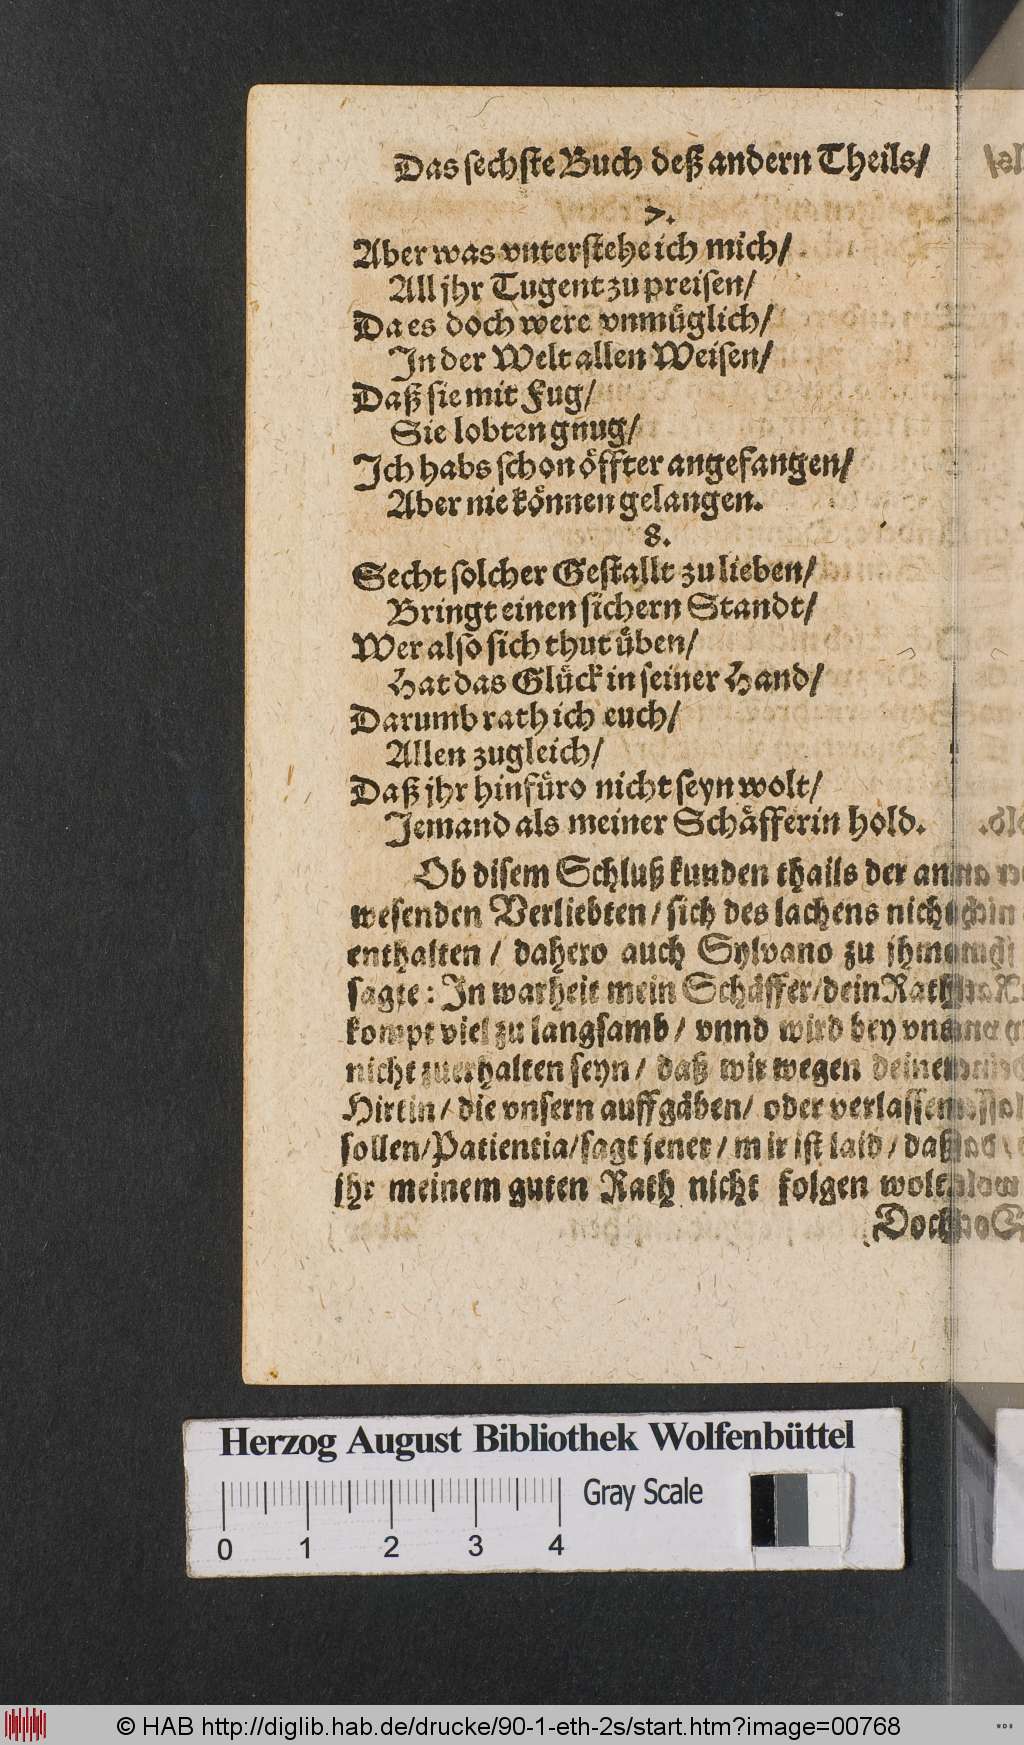 Das sechste Buch deß andern Theils/
7.
Aber was vnterstehe ich mich/
All jhr Tugent zu preisen/
Da es doch were vnmüglich/
In der Welt allen Weisen/
Daß sie mit Fug/
Sie lobten gnug/
Ich habs schon öffter angefangen/
Aber nie können gelangen.
8.
Secht solcher Gestallt zu lieben/
Bringt einen sichern Standt/
Wer also sich thut üben/
Hat das Glück in seiner Hand/
Darumb rath ich euch/
Allen zugleich/
Daß jhr hinfüro nicht seyn wolt/
Jemand als meiner Schäfferin hold.
Ob disem Schluß kunden thails der an-
wesenden Verliebten/ sich des lachens nicht
enthalten/ dahero auch Sylvano zu jhm
sagte: In warheit mein Schäffer/ dein Rath
kompt viel zu langsamb/ vnnd wird bey vns
nicht zuerhalten seyn/ daß wir wegen deiner
Hirtin/ die vnsern auffgäben/ oder verlassen
sollen/ Patientia/ sagt jener/ mir ist laid/ daß
jhr meinem guten Rath nicht folgen wolt/
Doch
Herzog August Bibliothek Wolfenbüttel
Gray Scale
0 1 2 3 4
© HAB http://diglib.hab.de/drucke/90-1-eth-2s/start.htm?image=00768